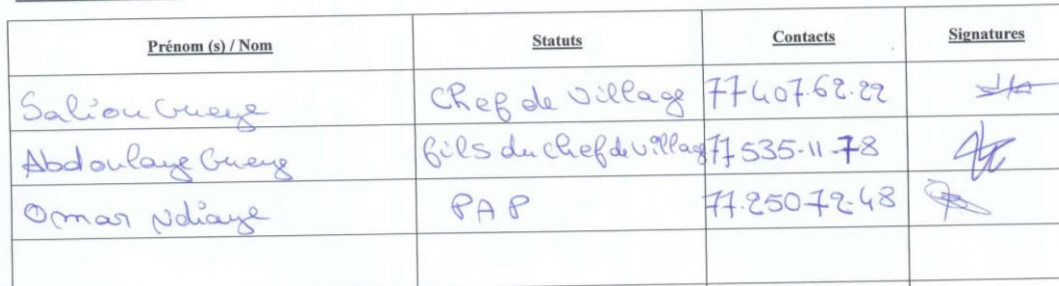 Prénom (s) / Nom Statuts Contacts Signatures
Saliou Gueye Chef de village 77 407.62.22
Abdoulaye Gueye fils du chef de village 77 535-11-78
Omar Ndiaye PAP 77.250 72-48